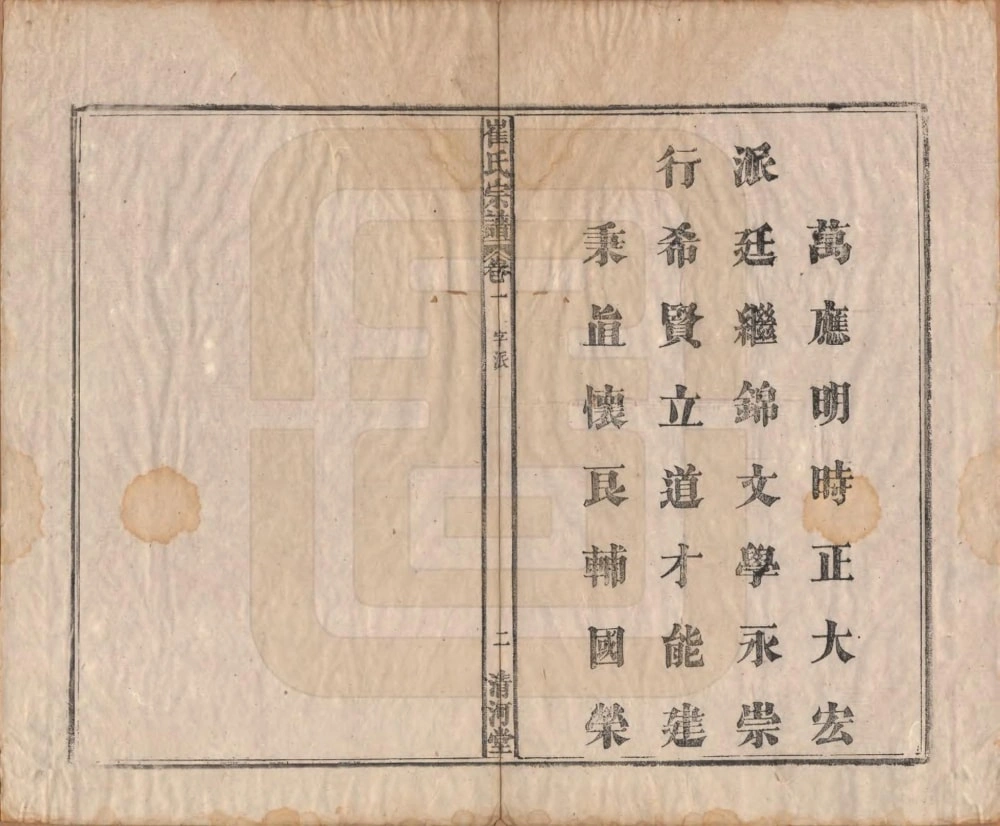 萬應明時正大宏
派廷繼錦文學永崇
行希賢立道才能建
秉旨懷良輔國榮
崔氏宗譜 卷一 字派 二 清河堂